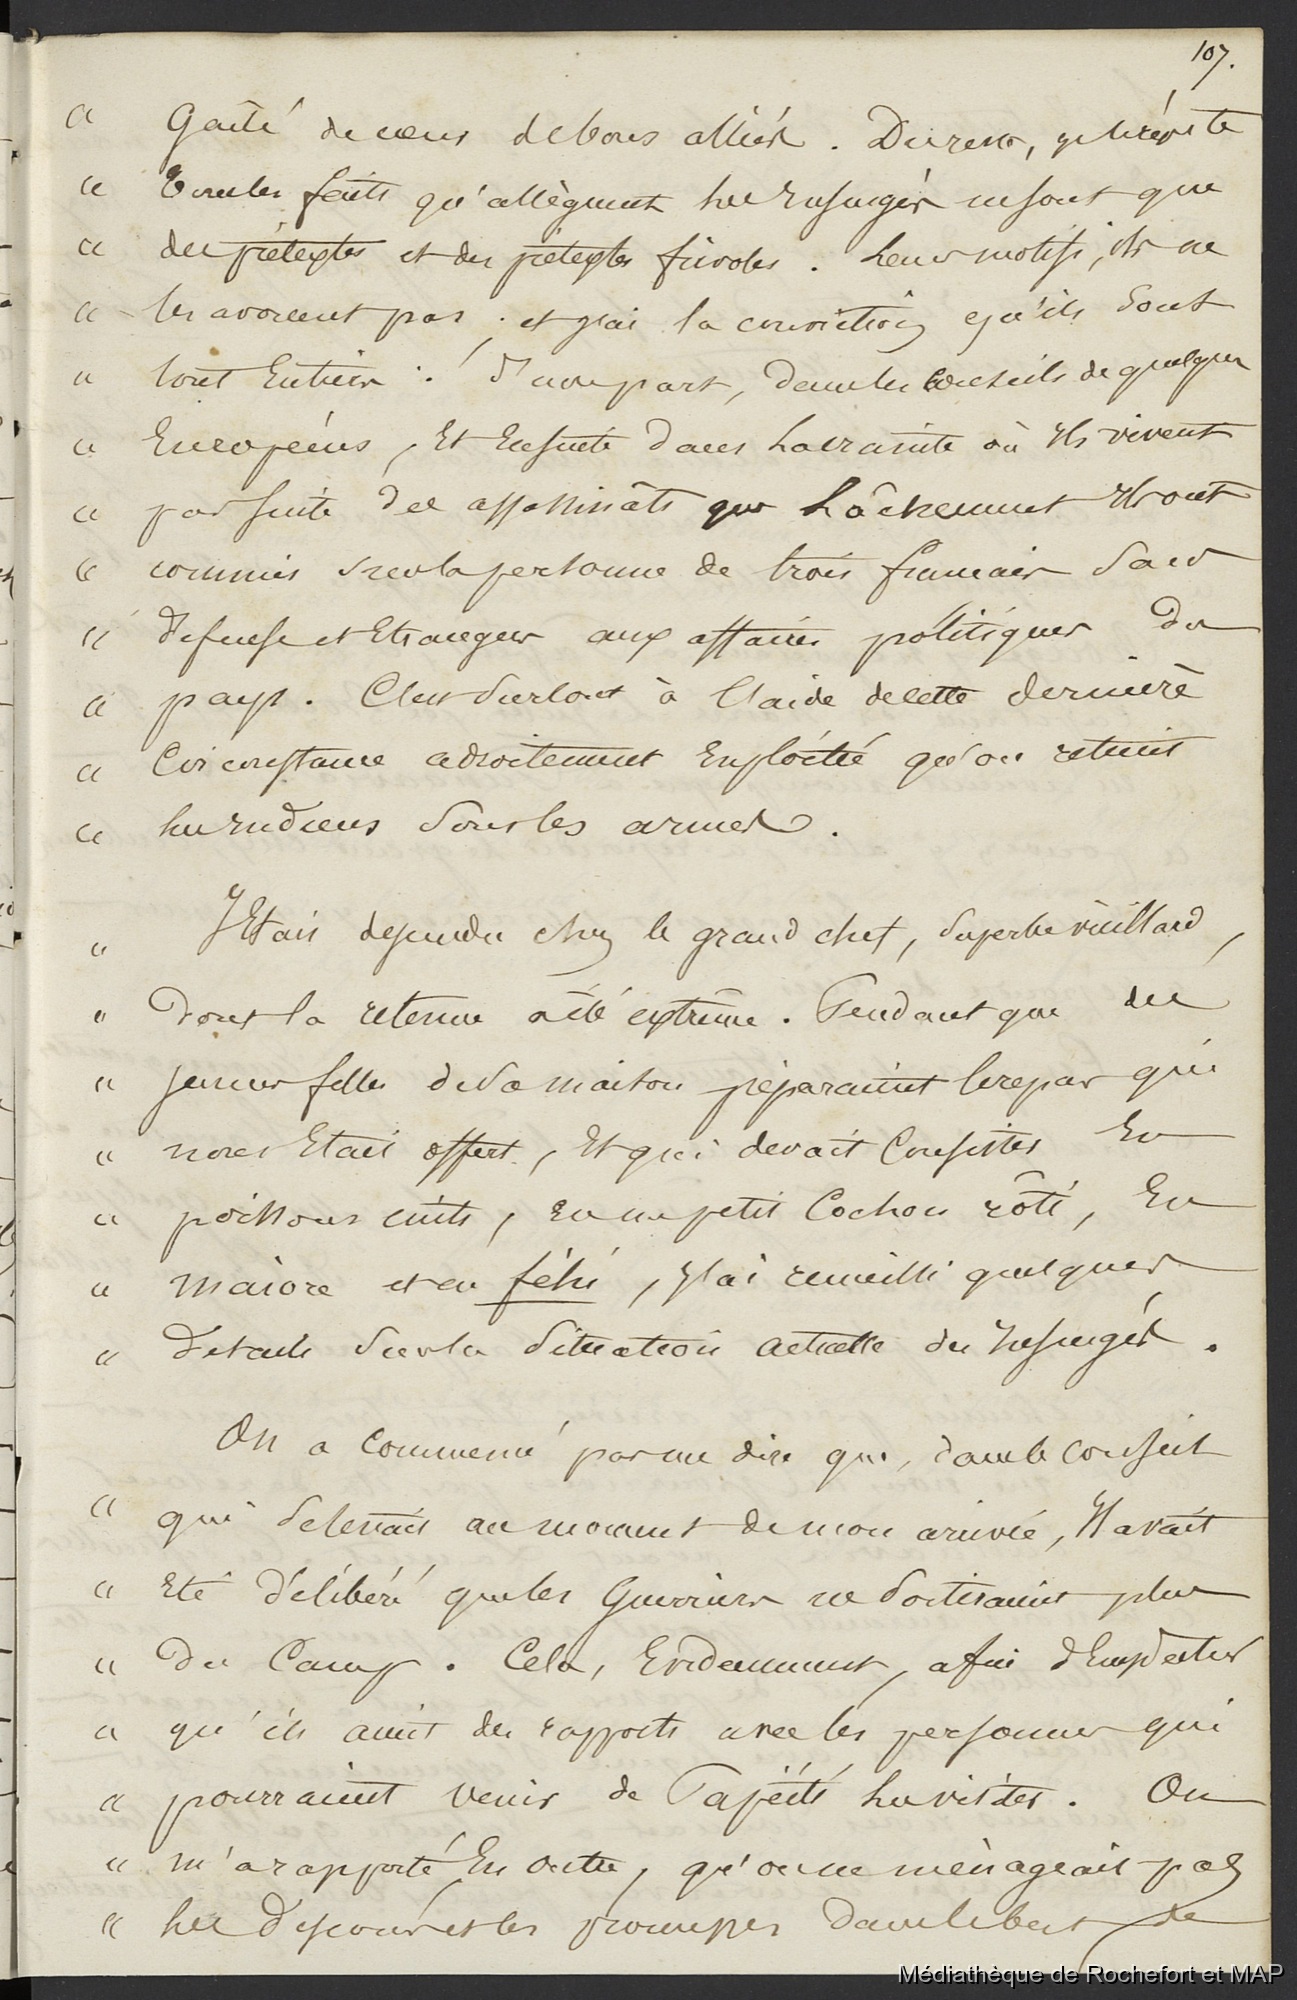 107.
" Gaîté de cœur de bons alliés. Du reste, je le répète
" tous les faits qu'allèguent les Insurgés ne sont que
" des prétextes et des prétextes frivoles. Leurs motifs, ils ne
" les avouent pas, et j'ai la conviction qu'ils sont
" tout entiers : d'une part, dans les conseils de quelques
" Européens, et Ensuite dans la crainte où Ils vivent
" par suite des assassinats que Lâchement Ils ont
" commis sur la personne de trois français sans
" défense et Etrangers aux affaires politiques du
" pays. C'est surtout à l'aide de cette dernière
" Circonstance adroitement Exploitée qu'on retient
" les Indiens sous les armes.
" J'Etais descendu chez le grand chef, superbe vieillard,
" dont la retenue a été extrême. Pendant que des
" jeunes filles de sa maison préparaient le repas qui
" nous Etait offert, Et qui devait Consister En
" poissons cuits, en un petit Cochon rôti, En
" maiore et en féhi, J'ai recueilli quelques
" détails sur la situation actuelle des Insurgés.
On a commencé par me dire que, dans le conseil
" qui se tenait au moment de mon arrivée, Il avait
" Eté délibéré que les Guerriers ne sortiraient plus
" du Camp. Cela, Evidemment, afin d'Empêcher
" qu'ils aient des rapports avec les personnes qui
" pourraient venir de Papéiti les visiter. On
" m'a rapporté En outre, qu'on ne ménageait pas
" les discours et les promesses dans le but de
Médiathèque de Rochefort et MAP